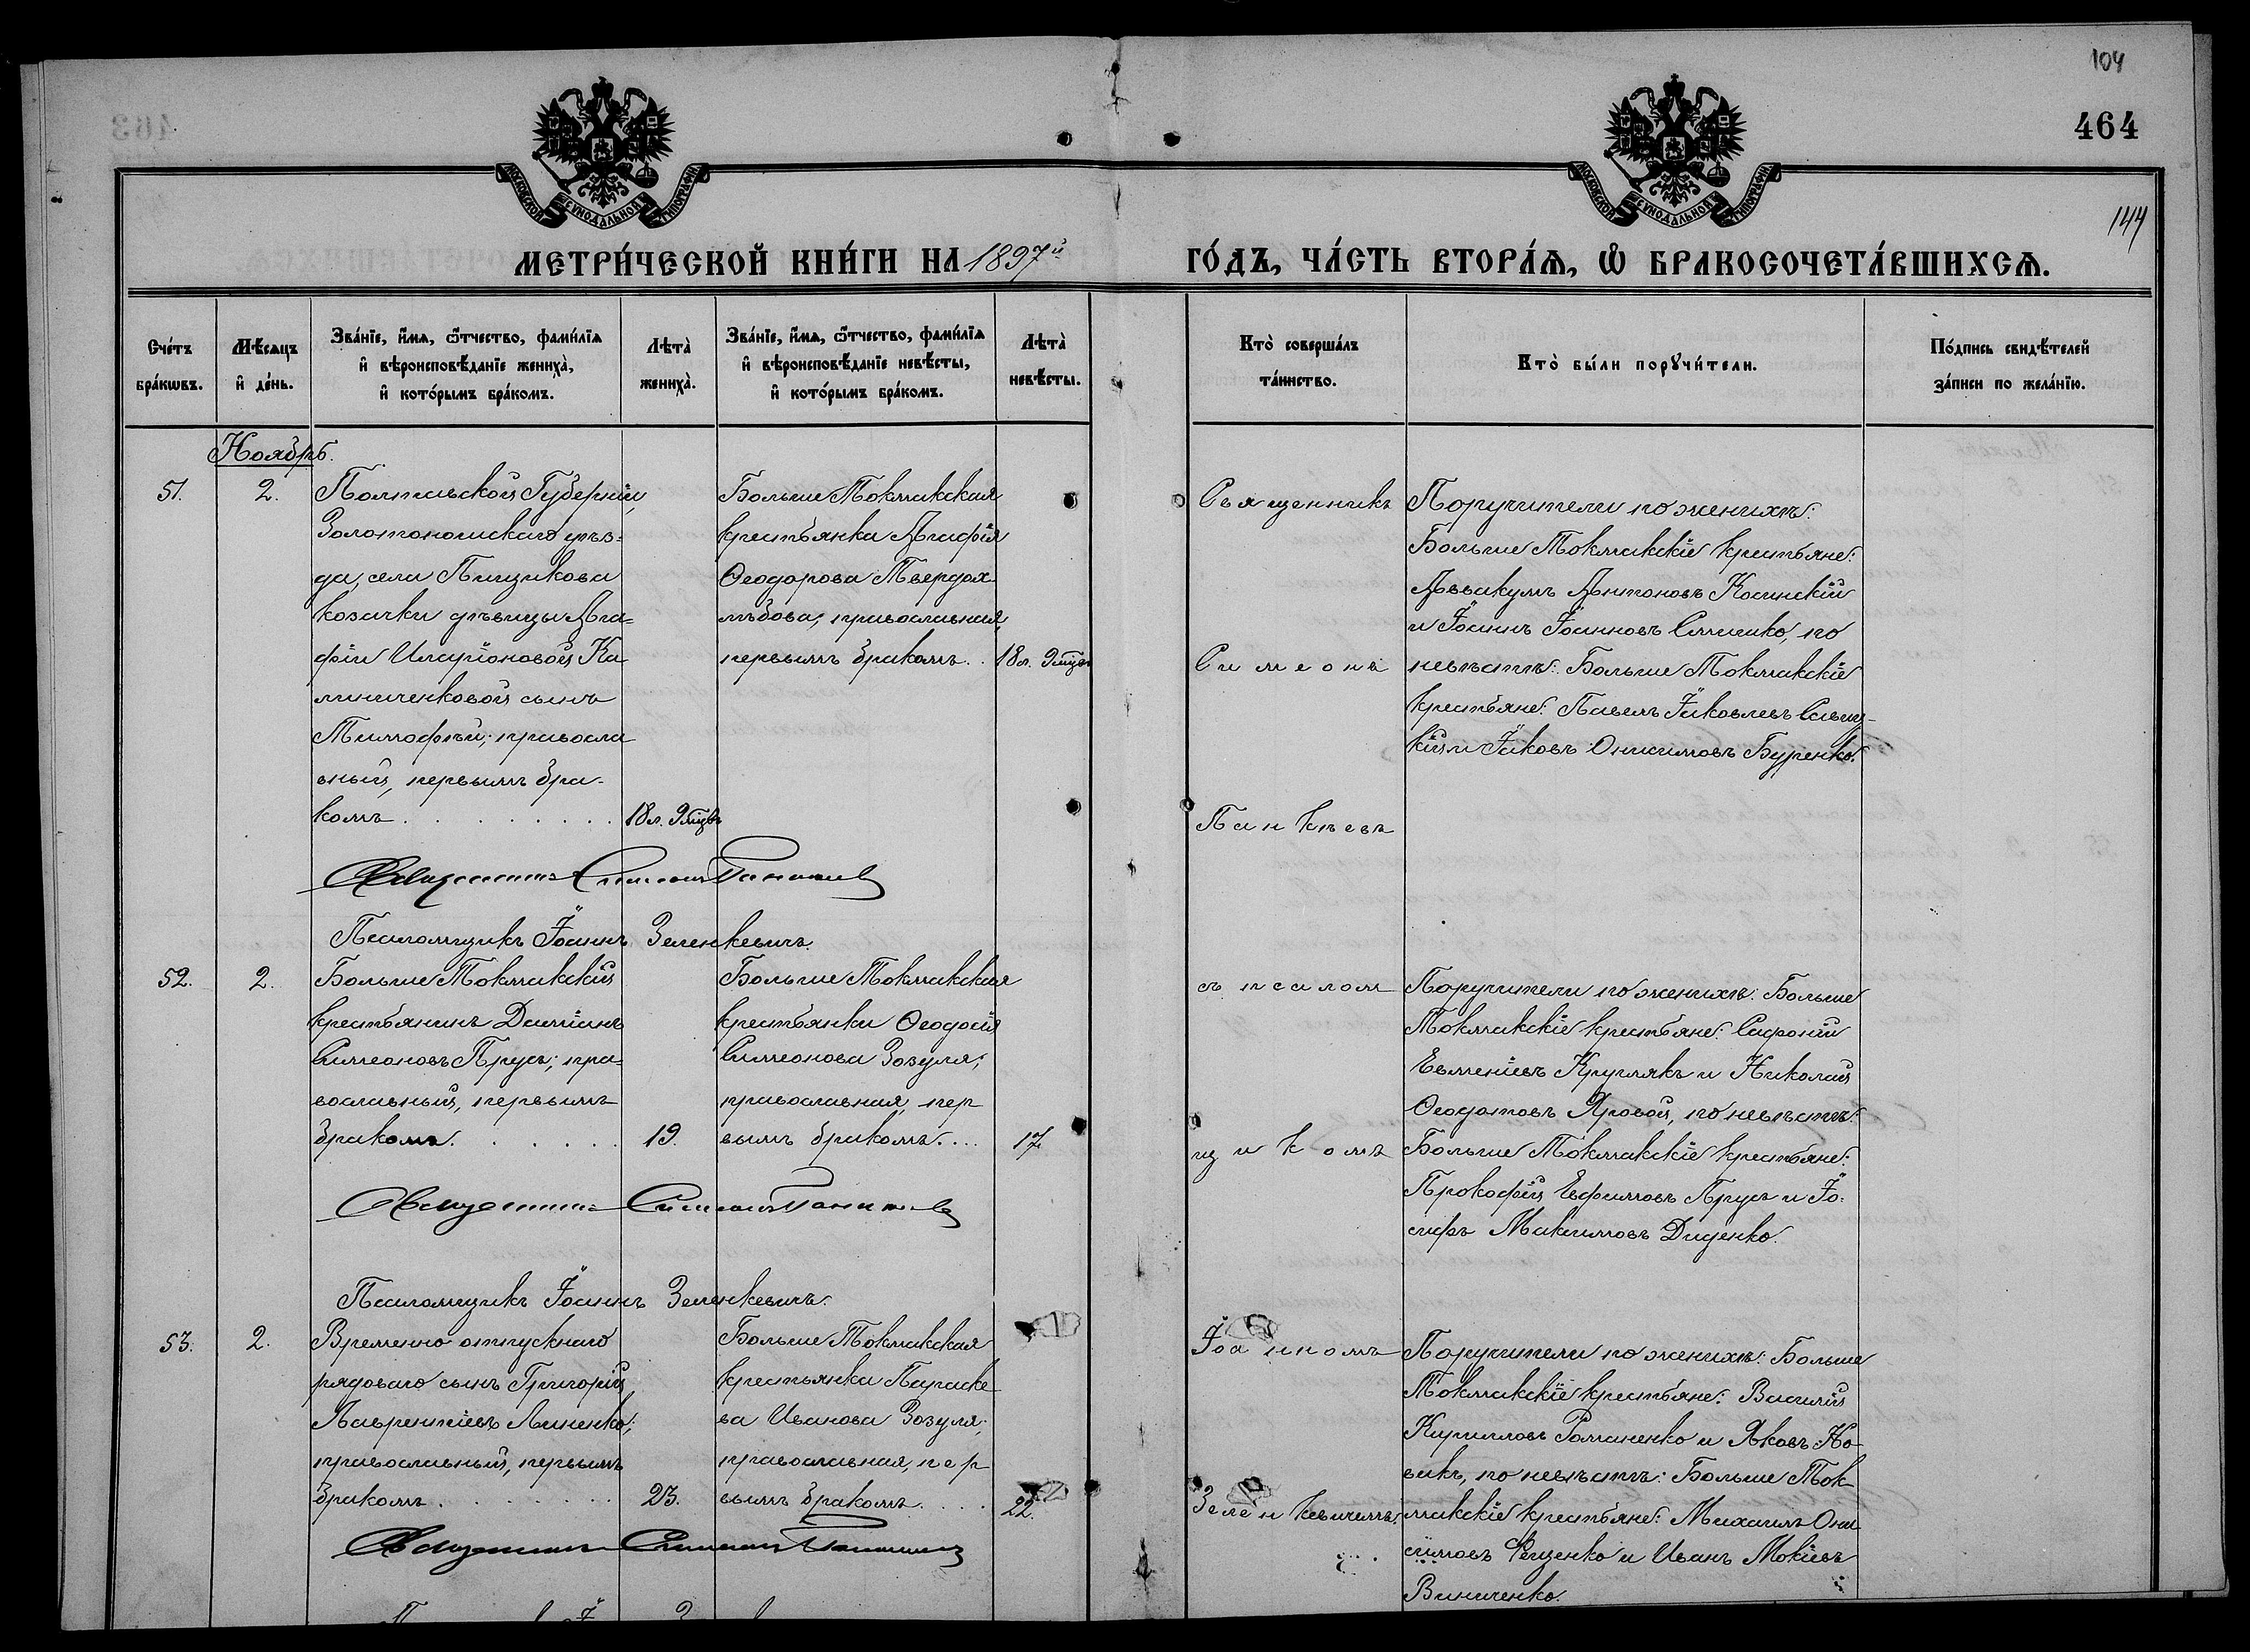 104
464
144
МОСКОВСКОЙ СѴНОДАЛЬНОЙ ТИПОГРАФІИ
МОСКОВСКОЙ СѴНОДАЛЬНОЙ ТИПОГРАФІИ
МЕТРИ́ЧЕСКОЙ КНИ́ГИ НА 1897й ГО́ДЪ, ЧА́СТЬ ВТОРА́Ѧ, Ѽ БРАКОСОЧЕТА́ВШИХСѦ.
Сче́тъ бра́кѡвъ.
Мѣ́сѧцъ и҆ де́нь.
Зва́нїе, и҆́мѧ, ѻ҆́тчество, фами́лїѧ и҆ вѣроисповѣ́данїе жениха̀, и҆ кото́рымъ бра́комъ.
Лѣта̀ жениха̀.
Зва́нїе, и҆́мѧ, ѻ҆́тчество, фами́лїѧ и҆ вѣроисповѣ́данїе невѣ́сты, и҆ кото́рымъ бра́комъ.
Лѣта̀ невѣ́сты.
Кто̀ соверша́лъ та́инство.
Кто̀ бы́ли порꙋчи́тели.
По́дпись свидѣ́телей за́писи по жела́нїю.
Ноябрь.
51.
2.
Полтавской Губерніи,
Золотоношскаго уѣз-
да, села Пищикова
козачки дѣвицы Ага-
фіи Иларіоновой Ка
линиченковой сынъ
Тимофѣй; правосла
вный, первымъ бра-
комъ
18 л. 9 мѣц.
Больше Токмакская
крестьянка Агафія
Ѳеодорова Твердох
лѣбова; православная,
первымъ бракомъ..
18 л. 9 мѣц.
Священникъ
Симеонъ
Панкѣевъ
Поручители по женихѣ:
Больше Токмакскіе крестьяне:
Аввакумъ Антоновъ Косинскій
и Іоаннъ Іоанновъ Симненко, по
невѣстѣ: Больше Токмакскіе
крестьяне: Павелъ Іаковлевъ Савиц-
кій и Іаковъ Онисимовъ Буренко.
Священникъ Симеонъ Панкѣевъ
Псаломщикъ Іоаннъ Зеленкевичъ.
52.
2.
Больше Токмакскій
крестьянинъ Даміанъ
Симеоновъ Прусъ; пра-
вославный, первымъ
бракомъ.
19.
Больше Токмакская
крестьянка Ѳеодосія
Симеонова Зозуля;
православная, пер
вымъ бракомъ....
17.
съ псалом
щикомъ
Поручители по женихѣ: Больше
Токмакскіе крестьяне: Сафоній
Евменіевъ Круглякъ и Николай
Ѳеодотовъ Яровой, по невѣстѣ:
Больше Токмакскіе крестьяне:
Прокофій Евфимовъ Прусъ и Іо-
сифъ Максимовъ Диденко.
Священникъ Симеонъ Панкѣевъ
Псаломщикъ Іоаннъ Зеленкевичъ.
53.
2.
Временно отпускнаго
рядоваго сынъ Григорій
Лаврентіевъ Линенко;
православный, первымъ
бракомъ
23.
Больше Токмакская
крестьянка Параске
ва Иванова Зозуля;
православная, пер
вымъ бракомъ....
22.
Іоанномъ
Зеленкевичемъ.
Поручители по женихѣ: Больше
Токмакскіе крестьяне: Василій
Кирилловъ Романенко и Яковъ Но-
викъ, по невѣстѣ: Больше Ток
макскіе крестьяне: Михаилъ Они
симовъ Фещенко и Иванъ Мокіевъ
Виниченко.
Священникъ Симеонъ Панкѣевъ